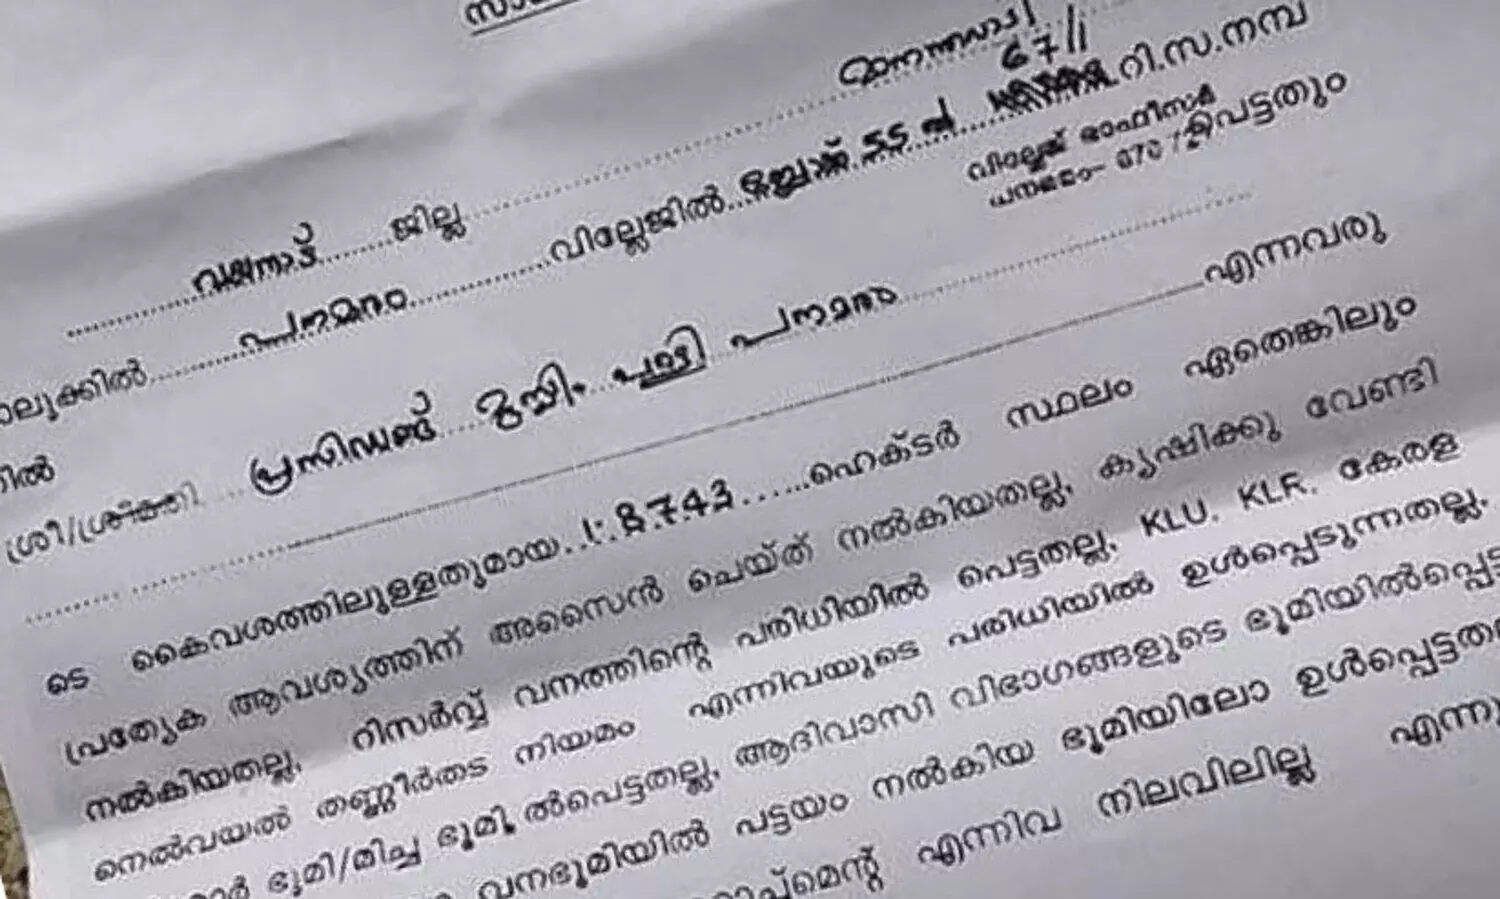 വയനാട് ജില്ല മാനന്തവാടി
67/1
താലൂക്കിൽ പനമരം വില്ലേജിൽ ബ്ലോക്ക് 55 ൽ റി.സ.നമ്പ
രിൽ പെട്ടതും
വില്ലേജ് ഓഫീസർ
പനമരം- 670 721
ശ്രീ/ശ്രീമതി പ്രസിഡണ്ട് മുസ്ലിം പള്ളി പനമരം എന്നവരു
ടെ കൈവശത്തിലുള്ളതുമായ 1.8743 ഹെക്ടർ സ്ഥലം ഏതെങ്കിലും
പ്രത്യേക ആവശ്യത്തിന് അസൈൻ ചെയ്ത് നൽകിയതല്ല, കൃഷിക്കു വേണ്ടി
നൽകിയതല്ല, റിസർവ്വ് വനത്തിന്റെ പരിധിയിൽ പെട്ടതല്ല, KLU. KLR. കേരള
നെൽവയൽ തണ്ണീർതട നിയമം എന്നിവയുടെ പരിധിയിൽ ഉൾപ്പെടുന്നതല്ല.
ഭൂമി/മിച്ച ഭൂമി ൽപെട്ടതല്ല, ആദിവാസി വിഭാഗങ്ങളുടെ ഭൂമിയിൽപ്പെട്ട
വനഭൂമിയിൽ പട്ടയം നൽകിയ ഭൂമിയിലോ ഉൾപ്പെട്ടതല്ല
എന്നിവ നിലവിലില്ല എന്നു